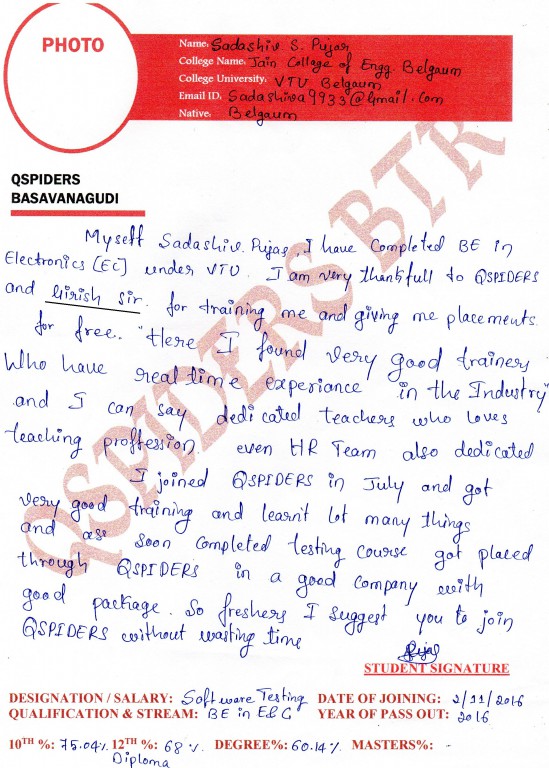 PHOTO
Name: Sadashiv S. Pujar
College Name: Jain College of Engg. Belgaum
College University: VTU Belgaum
Email ID: Sadashiva9933@Gmail.com
Native: Belgaum
QSPIDERS
BASAVANAGUDI
QSPIDERS BTR
Myself Sadashiv. Pujar, I have Completed BE in
Electronics [EC] under VTU. I am very thankfull to QSPIDERS
and Girish Sir. for training me and giving me placements
for free. "Here I found very good trainers
Who have real time experiance in the Industry"
and I can say dedicated teachers who loves
teaching proffession. even HR Team also dedicated
I joined QSPIDERS in July and got
very good training and learn't lot many things
and ass soon completed testing course got placed
through QSPIDERS in a good company with
good package. So freshers I suggest you to join
QSPIDERS without wasting time
Pujar
STUDENT SIGNATURE
DESIGNATION / SALARY: Software Testing DATE OF JOINING: 2/11/2016
QUALIFICATION & STREAM: BE in E&C YEAR OF PASS OUT: 2016
10TH %: 75.04% 12TH %: 68 % DEGREE%: 60.14% MASTERS%: -
Diploma